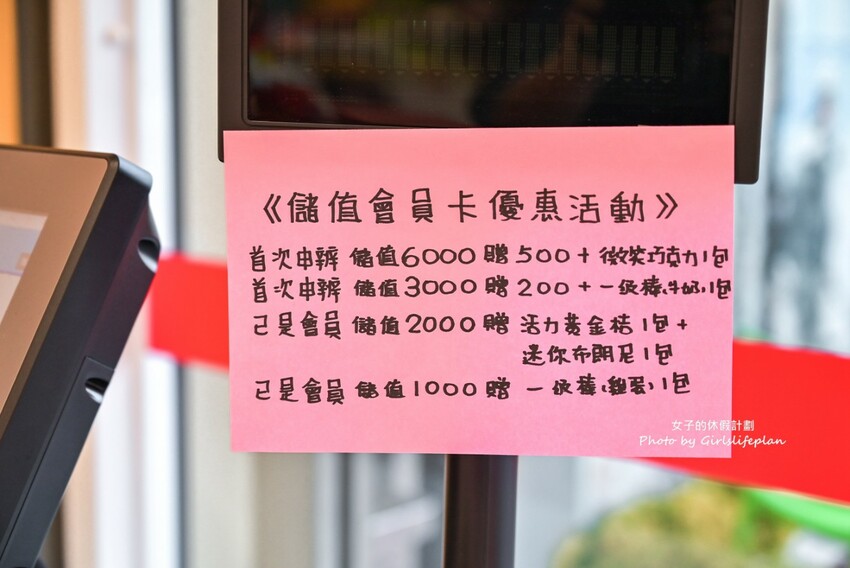 《儲值會員卡優惠活動》
首次申辨 儲值6000 贈 500+微笑巧克力1包
首次申辨 儲值3000 贈 200+一級棒(牛奶)1包
己是會員 儲值2000 贈 活力黃金桔1包+
迷你布朗尼1包
己是會員 儲值1000 贈 一級棒(雞蛋)1包
女子的休假計劃
Photo by Girlslifeplan